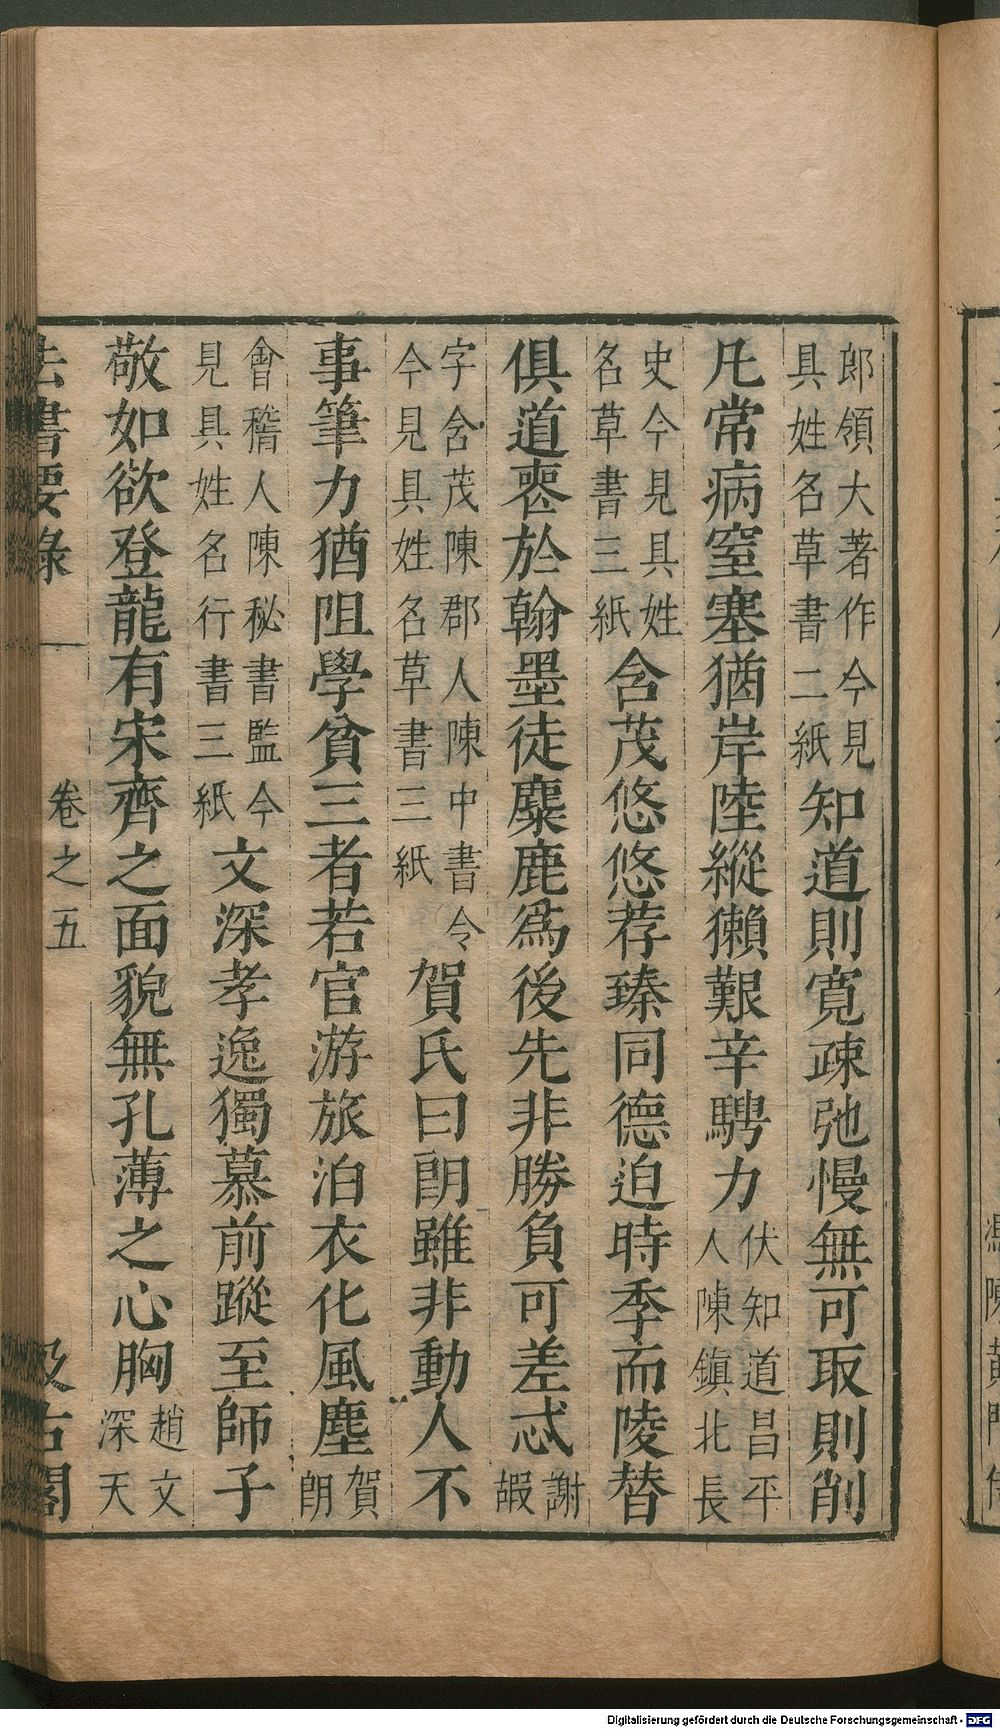 郎領大著作今見
具姓名草書二紙
知道則寛疎弛慢無可取則削
凡常病窒塞猶岸陸縱獺艱辛騁力
伏知道昌平
人陳鎮北長
史今見具姓
名草書三紙
含茂悠悠荐臻同德迫時季而陵替
俱道喪於翰墨徒麋鹿爲後先非勝負可差忒
謝
嘏
字含茂陳郡人陳中書令
今見具姓名草書三紙
賀氏曰朗雖非動人不
事筆力猶阻學貧三者若官游旅泊衣化風塵
賀
朗
會稽人陳秘書監今
見具姓名行書三紙
文深孝逸獨慕前蹤至師子
敬如欲登龍有宋齊之面貌無孔薄之心胸
趙文
深天
法書要錄 卷之五 汲古閣
Digitalisierung gefördert durch die Deutsche Forschungsgemeinschaft - DFG